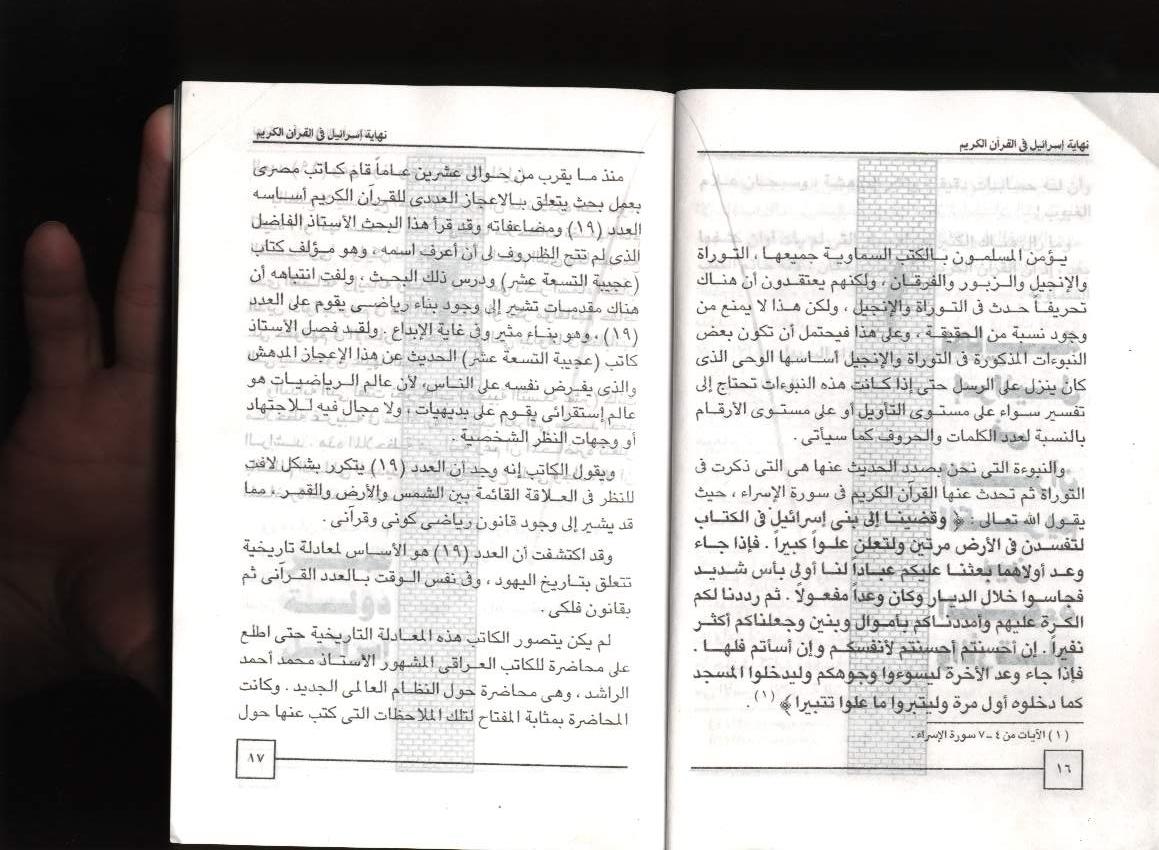 نهاية إسرائيل فى القرآن الكريم
يـؤمن المسلمـون بـالكتب السماويـة جميعهـا ، التـوراة
والإنجيل والـزبـور والفرقـان ، ولكنهم يعتقـدون أن هنـاك
تحريفـاً حدث فى التـوراة والإنجيل ، ولكن هـذا لا يمنع من
وجود نسبة من الحقيقـة ، وعلى هذا فيحتمل أن تكون بعض
النبوءات المذكورة فى التوراة والإنجيل أساسها الوحى الذى
كان ينزل على الرسل حتى إذا كانت هذه النبوءات تحتاج إلى
تفسير سواء على مستوى التأويل أو على مستوى الأرقام
بالنسبة لعدد الكلمات والحروف كما سيأتى .
والنبوءة التى نحن بصدد الحديث عنها هى التى ذكرت فى
التوراة ثم تحدث عنها القرآن الكريم فى سورة الإسراء ، حيث
يقول الله تعالى : ﴿ وقضينـا إلى بنى إسرائيل فى الكتاب
لتفسـدن فى الأرض مرتين ولتعلن علـواً كبيراً . فإذا جـاء
وعد أولاهما بعثنـا عليكم عباداً لنـا أولى بأس شديـد
فجاسوا خلال الديـار وكان وعداً مفعـولاً . ثم رددنـا لكم
الكـرة عليهم وأمددنـاكم بأمـوال وبنين وجعلناكم أكثـر
نفيراً . إن أحسنتم أحسنتم لأنفسكـم وإن أسأتم فلهـا .
فإذا جاء وعد الآخرة ليسوءوا وجوهكم وليدخلوا المسجد
كما دخلوه أول مرة وليتبروا ما علوا تتبيرا ﴾ (١) .
(١) الآيات من ٤ - ٧ سورة الإسراء .
١٦
نهاية إسرائيل فى القرآن الكريم
منذ مـا يقرب من حـوالى عشـرين عـامـاً قام كـاتب مصرى
بعمل بحث يتعلق بـالاعجاز العددى للقـرآن الكريم أسـاسه
العدد (١٩) ومضاعفاته وقد قرأ هذا البحث الأستاذ الفاضل
الذى لم تتح الظـروف لى أن أعرف اسمه ، وهو مـؤلف كتاب
(عجيبة التسعة عشر) ودرس ذلك البحـث ، ولفت انتباهه أن
هناك مقدمـات تشير إلى وجود بناء رياضـى يقوم على العدد
(١٩) ، وهو بنـاء مثير وفى غاية الإبداع . ولقـد فصل الأستاذ
كاتب (عجيبة التسعة عشر) الحديث عن هذا الإعجاز المدهش
والذى يفـرض نفسه على النـاس، لأن عالم الـرياضيـات هو
عالم إستقرائى يقوم على بديهيات ، ولا مجال فيه للاجتهاد
أو وجهات النظر الشخصية .
ويقول الكاتب إنه وجد أن العدد (١٩) يتكرر بشكل لافت
للنظر فى العـلاقة القائمة بين الشمس والأرض والقمـر ، مما
قد يشير إلى وجود قانون رياضى كونى وقرآنى .
وقد اكتشفت أن العدد (١٩) هو الأساس لمعادلة تاريخية
تتعلق بتـاريخ اليهود ، وفى نفس الوقت بـالعدد القـرآنى ثم
بقانون فلكى .
لم يكن يتصور الكاتب هذه المعادلة التاريخية حتى اطلع
على محاضرة للكاتب العـراقى المشهور الاستـاذ محمد أحمد
الراشد ، وهى محاضرة حول النظام العالمى الجديد . وكانت
المحاضرة بمثابة المفتاح لتلك الملاحظات التى كتب عنها حول
١٧